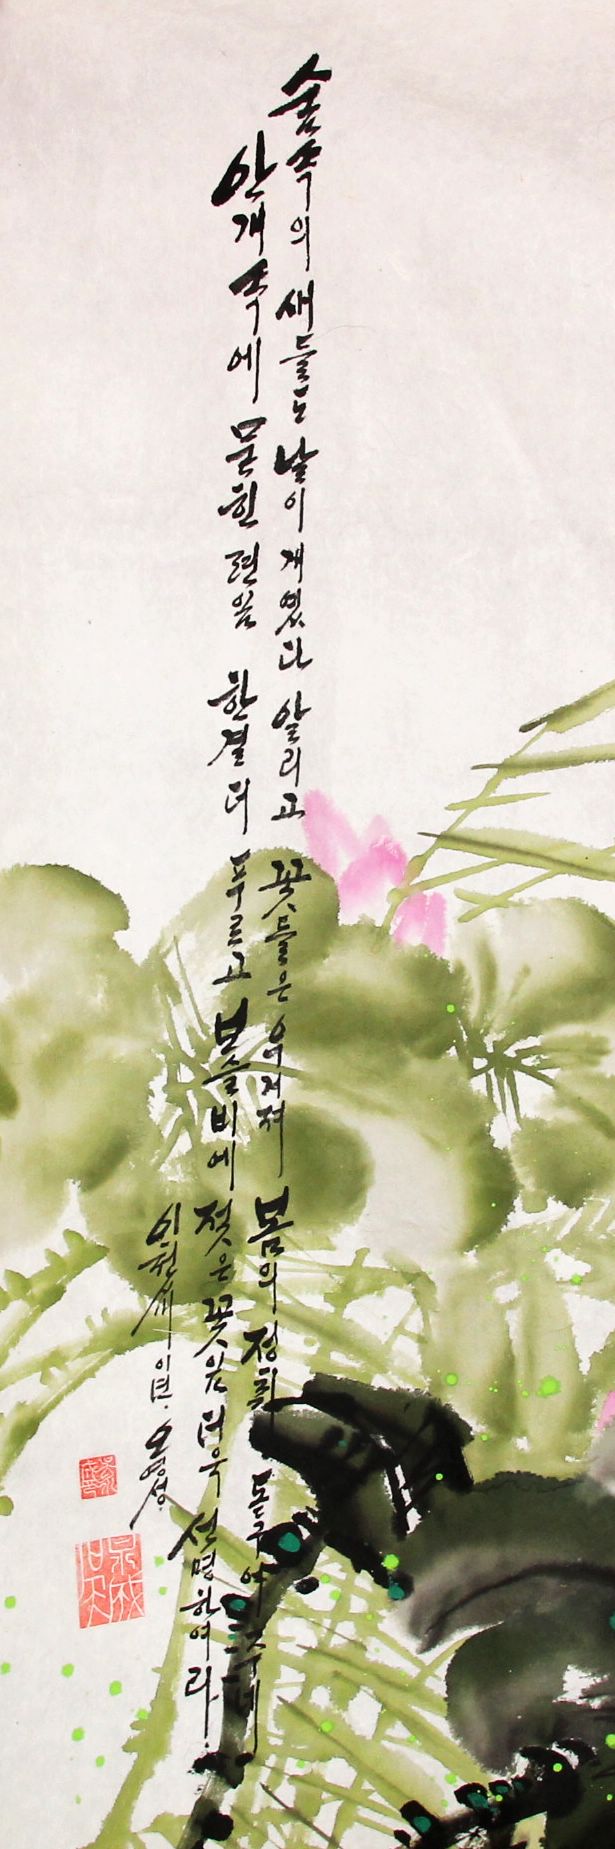 숲속의 새들도 날이 개였다 알리고 꽃들은 우거져 봄의 정취 돋구어 주네
안개 속에 묻힌 련잎 한결 더 푸르고 보슬비에 젖은 꽃잎 더욱 선명하여라.
이천세이년. 오영성.